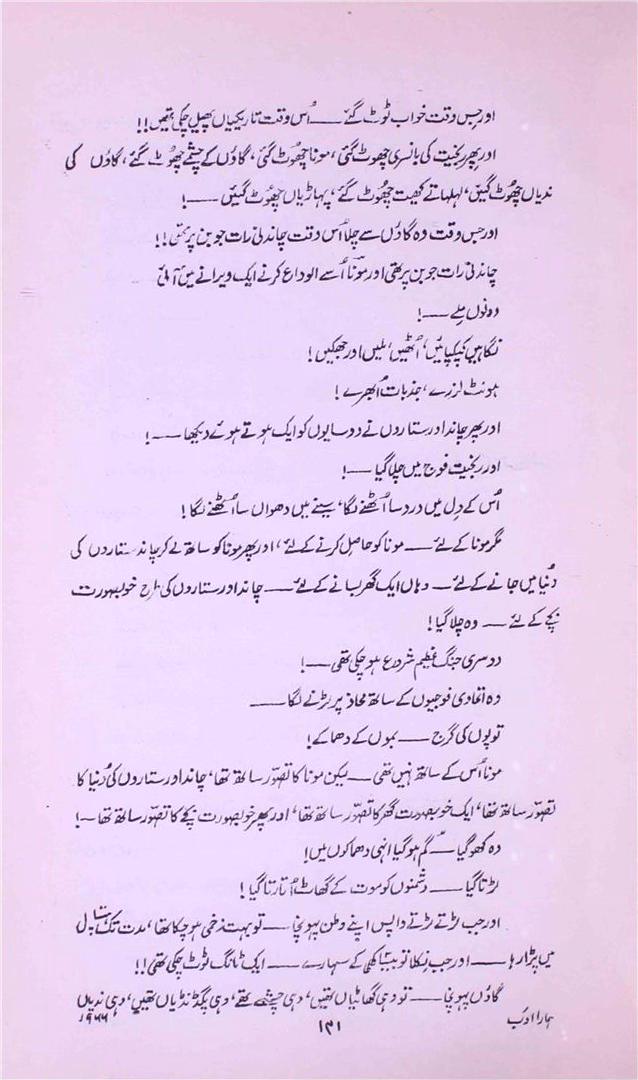 اور جس وقت خواب ٹوٹ گئے — اُس وقت تاریکیاں پھیل چکی تھیں!!
اور پھر رنجیت کی بانسری چھوٹ گئی، مونا چھوٹ گئی، گاؤں کے چشمے چھوٹ گئے، گاؤں کی
ندیاں چھُوٹ گئیں، لہلہاتے کھیت چھُوٹ گئے، پہاڑیاں چھُوٹ گئیں —!
اور جس وقت وہ گاؤں سے چلا اُس وقت چاندنی رات جوبن پر تھی!!
چاندنی رات جوبن پر تھی اور مونا اُسے الوداع کرنے ایک ویرانے میں آئی
دونوں ملے —!
نگاہیں کپکپائیں، اُٹھیں، ملیں اور جھکیں!
ہونٹ لرزے، جذبات اُبھرے!
اور پھر چاند اور ستاروں نے دو سایوں کو ایک ہوتے ہوئے دیکھا —!
اور رنجیت فوج میں چلا گیا —!
اُس کے دِل میں درد سا اُٹھنے لگا، سینے میں دھواں سا اُٹھنے لگا!
مگر مونا کے لئے — مونا کو حاصل کرنے کے لئے، اور پھر مونا کو ساتھ لے کر چاند ستاروں کی
دُنیا میں جانے کے لئے — وہاں ایک گھر بسانے کے لئے — چاند اور ستاروں کی طرح خوبصورت
بچے کے لئے — وہ چلا گیا!
دوسری جنگ عظیم شروع ہو چکی تھی —!
وہ اتحادی فوجیوں کے ساتھ محاذ پر لڑنے لگا —
توپوں کی گرج — بموں کے دھماکے!
مونا اُس کے ساتھ نہیں تھی — لیکن مونا کا تصوّر ساتھ تھا، چاند اور ستاروں کی دُنیا کا
تصوّر ساتھ تھا، ایک خوبصورت گھر کا تصوّر ساتھ تھا، اور پھر خوبصورت بچے کا تصوّر ساتھ تھا —!
وہ کھو گیا — گم ہو گیا انہی دھماکوں میں!
لڑتا گیا — دشمنوں کو موت کے گھاٹ اُتارتا گیا!
اور جب لڑتے لڑتے واپس اپنے وطن پہونچا — تو بہت زخمی ہو چکا تھا، مدت تک ہسپتال
میں پڑا رہا — اور جب نکلا تو بیساکھی کے سہارے — ایک ٹانگ ٹوٹ چکی تھی!!
گاؤں پہونچا — تو وہی گھاٹیاں تھیں، وہی چشمے تھے، وہی پگڈنڈیاں تھیں، وہی ندیاں
ہمارا ادب ۱۳۱ ۱۹۶۶ء